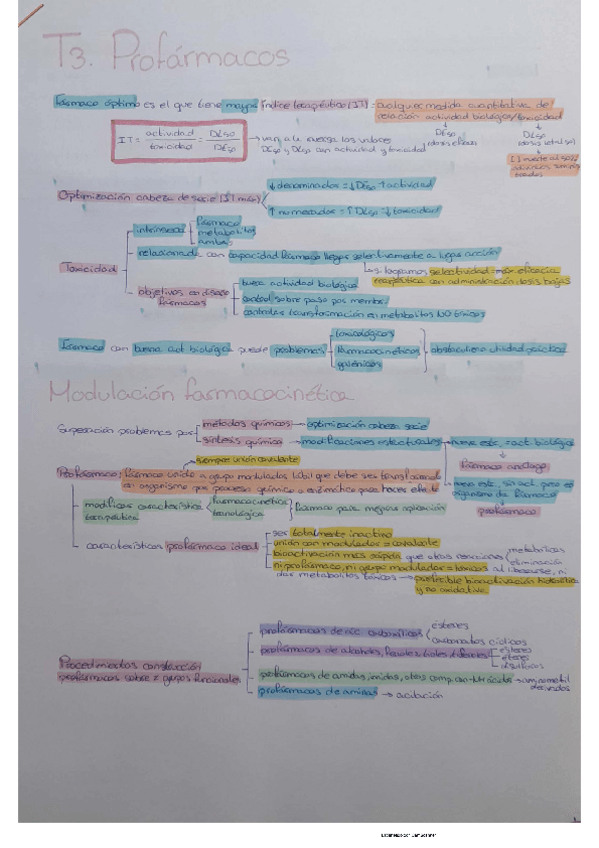 T3. Profármacos
Fármaco óptimo es el que tiene mayor índice terapéutico (IT) = cualquier medida cuantitativa de relación actividad biológica/toxicidad
IT = actividad / toxicidad = DL50 / DE50 → 
DE50 y DL50 con actividad y toxicidad
DE50 (dosis eficaz)
DL50 (dosis letal 50)
Optimización cabeza de serie
↓ denominador = ↓ DE50 ↑ actividad
↑ numerador = ↑ DL50 ↓ toxicidad
Toxicidad
intrínseca
fármaco
metabolitos
ambos
relacionada con capacidad fármaco llegar selectivamente a lugar acción
si logramos selectividad = eficacia
terapéutica con administración dosis bajas
objetivos en diseño fármacos
buena actividad biológica
control sobre paso por membr.
controlar transformación en metabolitos NO tóxicos
Fármaco con buena act. biológica puede problemas
toxicológicos
farmacocinéticos
químicos
obstaculiza utilidad práctica
Modulación farmacocinética
Superación problemas por
métodos químicos → optimización cabeza serie
síntesis química → modificaciones estructurales
nueva estr, act. biológica
fármaco análogo
siempre unión covalente
Profármaco: fármaco unido a grupo modulador lábil que debe ser transformado
en organismo por proceso químico o enzimático para hacer efecto
nueva estr, sin act. pero en organismo da fármaco
profármaco
modificar característica
terapéutica
farmacocinética
tecnológica
fármaco para mejorar aplicación
características profármaco ideal
ser totalmente inactivo
unión con modulador = covalente
bioactivación más rápida que otras reacciones
metabólicas
eliminación
ni profármaco, ni grupo modulador = tóxicos al liberarse, ni
dar metabolitos tóxicos → preferible bioactivación hidrolítica
y no oxidativa
Procedimientos construcción
profármacos sobre ≠ grupos funcionales
profármacos de ác. carboxílicos
ésteres
carbonatos cíclicos
profármacos de alcoholes, fenoles, tioles
ésteres
éteres
disulfuros
profármacos de amidas, imidas, otros comp. ácidos → aminometil
derivados
profármacos de aminas → acilación